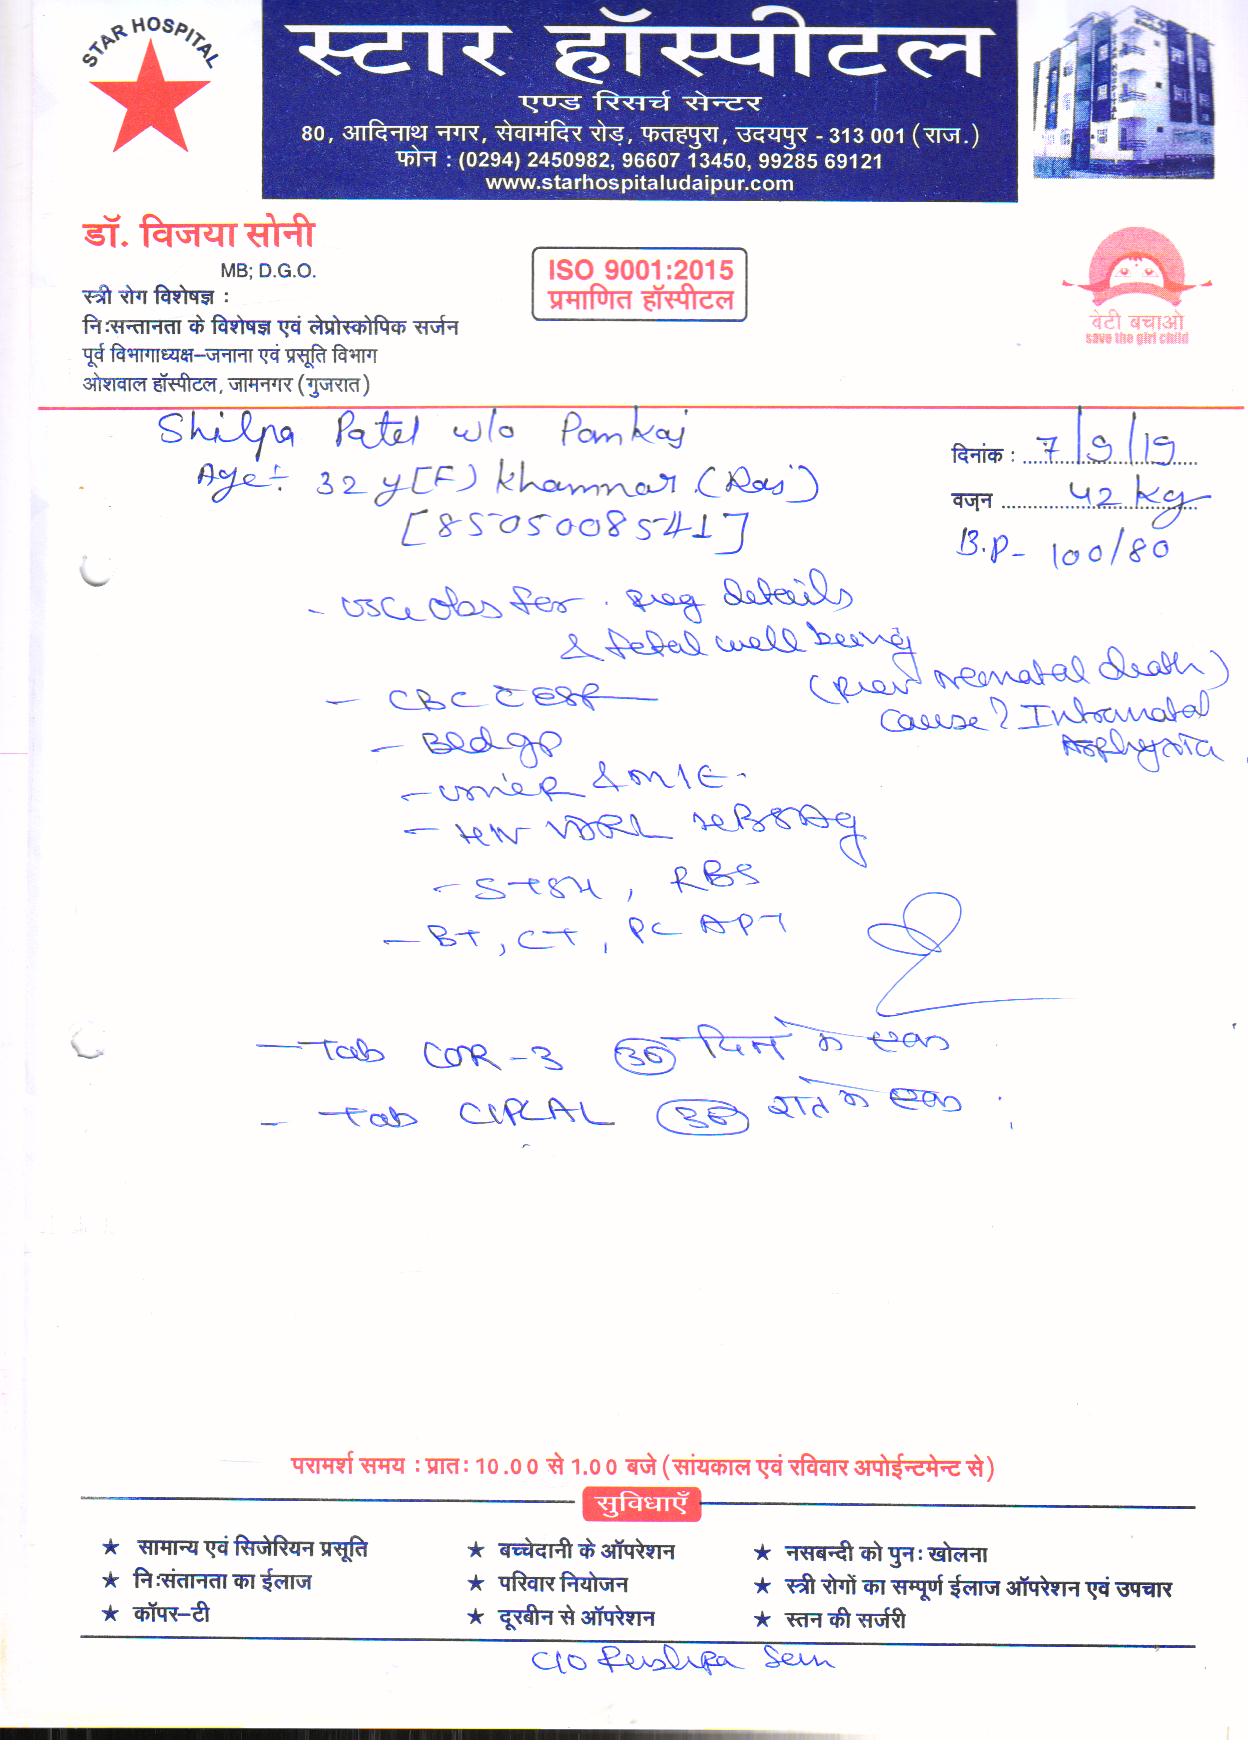 STAR HOSPITAL
स्टार हॉस्पीटल
एण्ड रिसर्च सेन्टर
80, आदिनाथ नगर, सेवामंदिर रोड़, फतहपुरा, उदयपुर - 313 001 (राज.)
फोन : (0294) 2450982, 96607 13450, 99285 69121
www.starhospitaludaipur.com
डॉ. विजया सोनी
MB; D.G.O.
स्त्री रोग विशेषज्ञ :
नि:सन्तानता के विशेषज्ञ एवं लेप्रोस्कोपिक सर्जन
पूर्व विभागाध्यक्ष–जनाना एवं प्रसूति विभाग
ओशवाल हॉस्पीटल, जामनगर (गुजरात)
ISO 9001:2015
प्रमाणित हॉस्पीटल
बेटी बचाओ
save the girl child
Shilpa Patel w/o Pankaj
Age:- 32 y [F] Khamnar (Raj)
[8505008541]
दिनांक : 7/9/19
वज़न 42 kg
B.P- 100/80
- USG Obs for preg details
& fetal well being
(prev neonatal death)
cause? Intranatal
Asphyxia
- CBC C ESR
- Bld gp
- Urine R & M/E
- HIV VDRL HBSAg
- S TSH, RBS
- BT, CT, PC APT
- Tab COR-3 (30) दिन में एक
- Tab CIPCAL (30) रात में एक
परामर्श समय : प्रात: 10.00 से 1.00 बजे (सांयकाल एवं रविवार अपोईन्टमेन्ट से)
सुविधाएँ
★ सामान्य एवं सिजेरियन प्रसूति
★ नि:संतानता का ईलाज
★ कॉपर–टी
★ बच्चेदानी के ऑपरेशन
★ परिवार नियोजन
★ दूरबीन से ऑपरेशन
★ नसबन्दी को पुन: खोलना
★ स्त्री रोगों का सम्पूर्ण ईलाज ऑपरेशन एवं उपचार
★ स्तन की सर्जरी
C/O